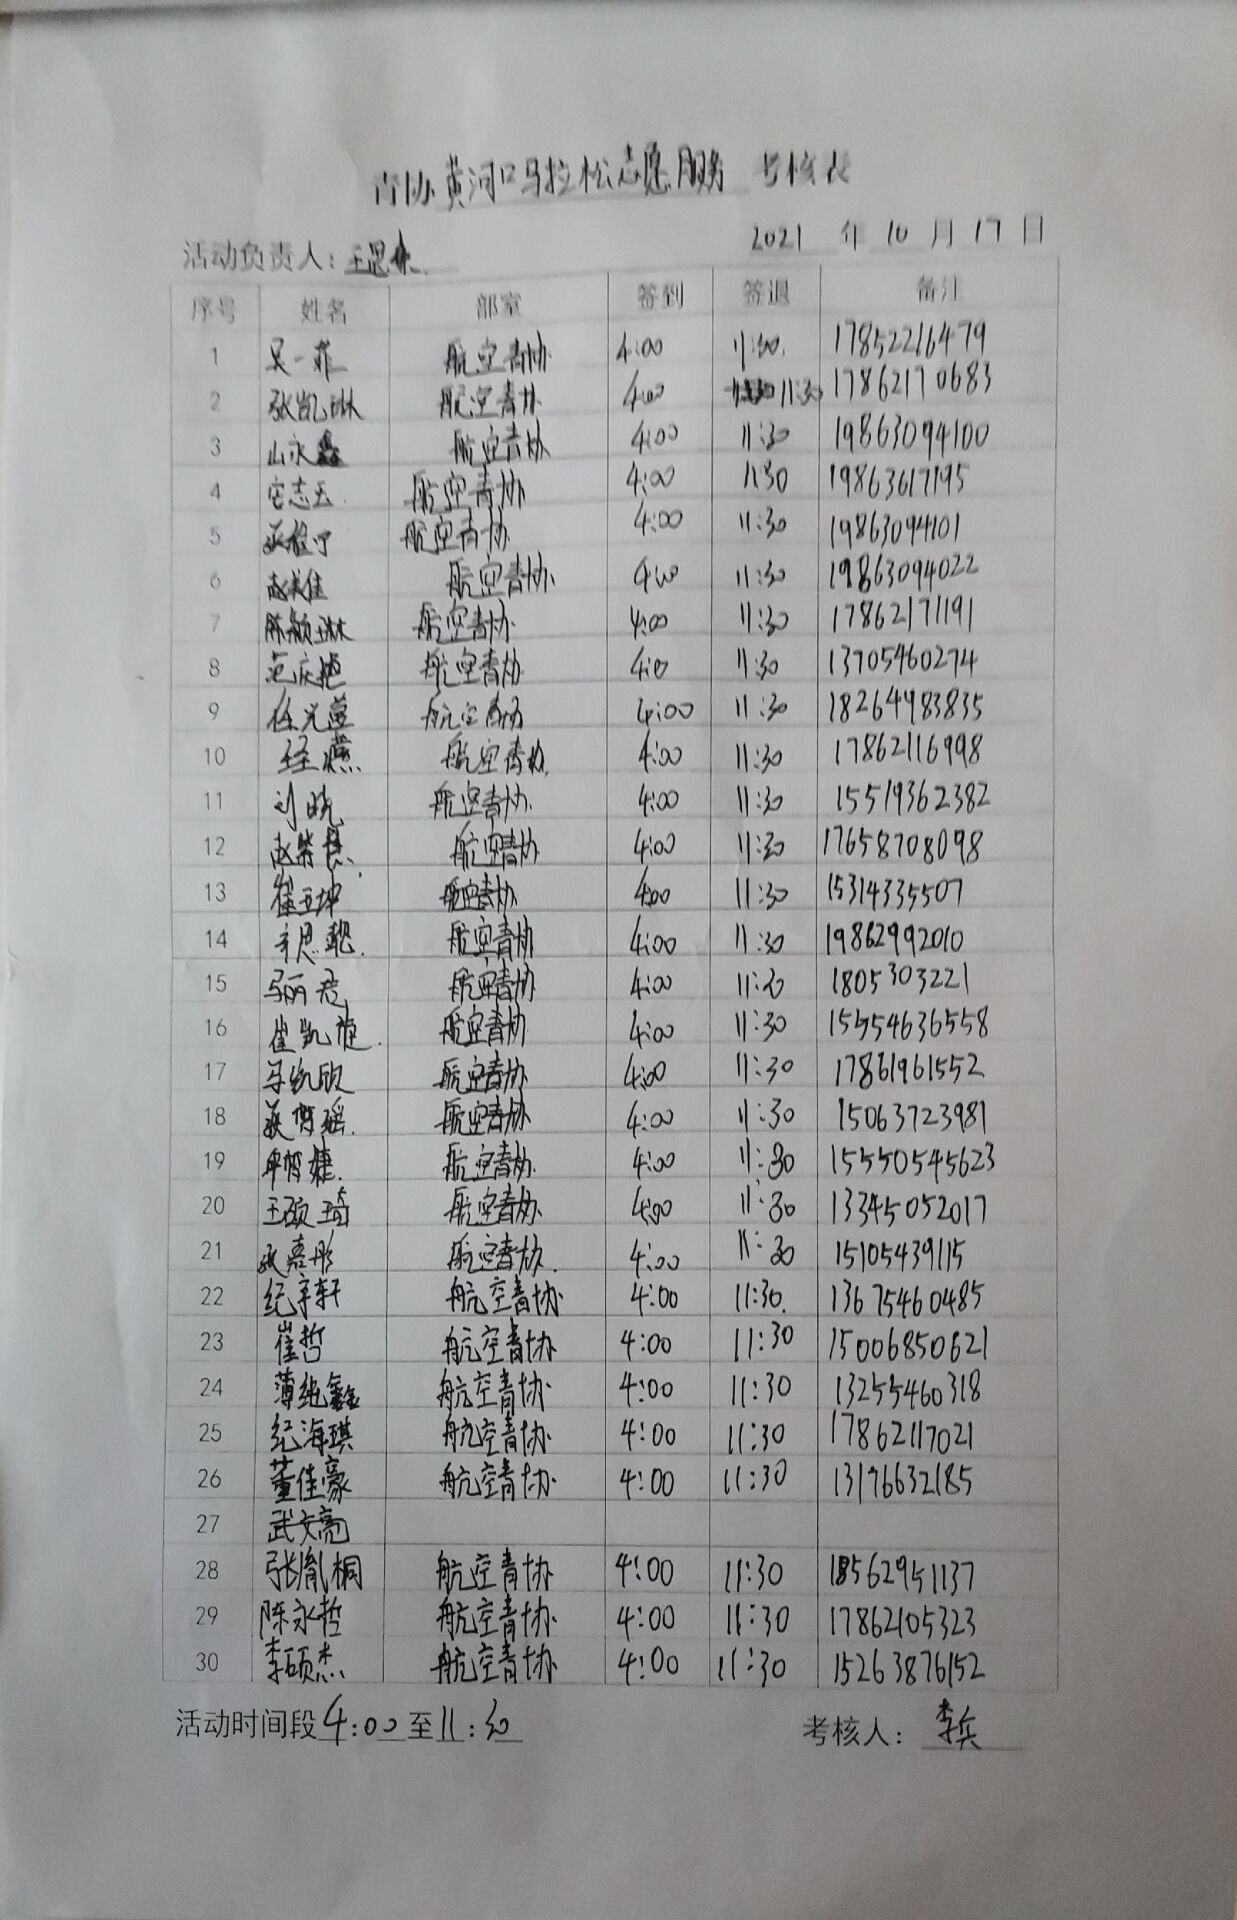 青协黄河口马拉松志愿服务 考核表
活动负责人: 2021 年 10 月 17 日
序号 姓名 部室 签到 签退 备注
1 吴一菲 航空青协 4:00 11:30 17852216479
2 张凯琳 航空青协 4:00 11:30 17862170683
3 山永鑫 航空青协 4:00 11:30 19863094100
4 航空青协 4:00 11:30 19863617195
5 航空青协 4:00 11:30 19863094101
6 赵美佳 航空青协 4:00 11:30 19863094022
7 陈颖琳 航空青协 4:00 11:30 17862171191
8 航空青协 4:0 11:30 13705460274
9 航空青协 4:00 11:30 18264983835
10 航空青协 4:00 11:30 17862116998
11 刘晓 航空青协 4:00 11:30 15519362382
12 航空青协 4:00 11:30 17658708098
13 崔玉坤 航空青协 4:00 11:30 15314335507
14 辛思聪 航空青协 4:00 11:30 19862992010
15 马丽君 航空青协 4:00 11:30 1805303221
16 崔凯旋 航空青协 4:00 11:30 15554636558
17 马凯欣 航空青协 4:00 11:30 17861961552
18 航空青协 4:00 11:30 15063723981
19 航空青协 4:00 11:30 15550545623
20 王硕琦 航空青协 4:00 11:30 13345052017
21 张嘉彤 航空青协 4:00 11:30 15105439115
22 纪宇轩 航空青协 4:00 11:30 13675460485
23 崔哲 航空青协 4:00 11:30 15006850621
24 薄纯鑫 航空青协 4:00 11:30 13255460318
25 纪海琪 航空青协 4:00 11:30 17862117021
26 董佳豪 航空青协 4:00 11:30 13176632185
27 武文亮
28 张胤桐 航空青协 4:00 11:30 18562951137
29 陈永哲 航空青协 4:00 11:30 17862105323
30 李硕杰 航空青协 4:00 11:30 15263876152
活动时间段4:00至11:30 考核人: 李兵